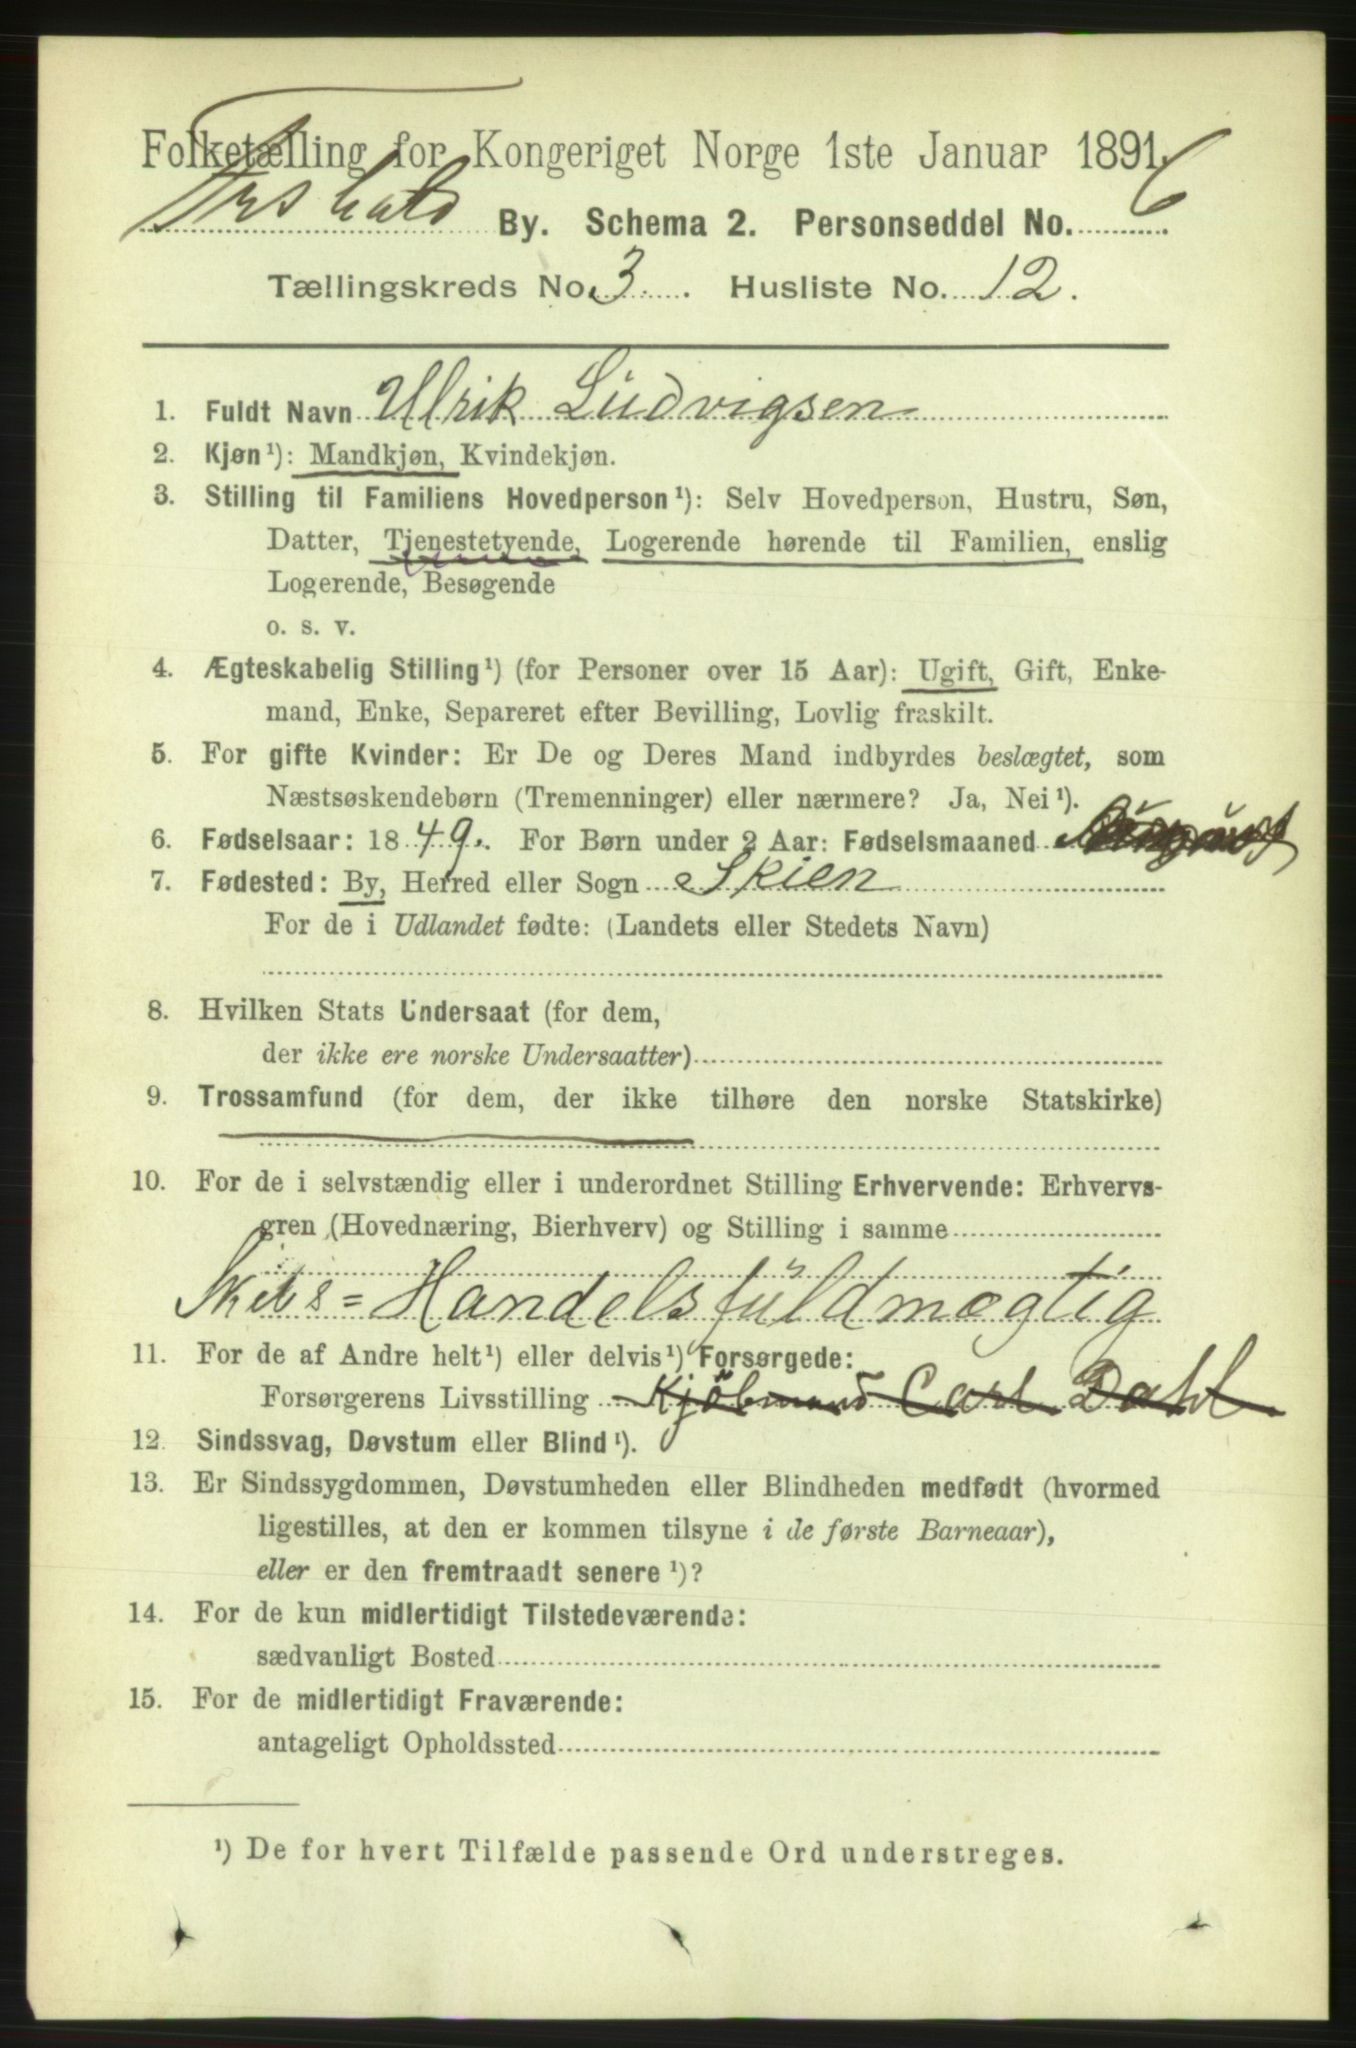 Folketælling for Kongeriget Norge 1ste Januar 1891.
By. Schema 2. Personseddel No. 6
Tællingskreds No. 3. Husliste No. 12.
1. Fuldt Navn Ulrik Ludvigsen
2. Kjøn¹): Mandkjøn, Kvindekjøn.
3. Stilling til Familiens Hovedperson¹): Selv Hovedperson, Hustru, Søn,
Datter, Tjenestetyende, Logerende hørende til Familien, enslig
Logerende, Besøgende
o. s. v.
4. Ægteskabelig Stilling¹) (for Personer over 15 Aar): Ugift, Gift, Enke-
mand, Enke, Separeret efter Bevilling, Lovlig fraskilt.
5. For gifte Kvinder: Er De og Deres Mand indbyrdes beslægtet, som
Næstsøskendebørn (Tremenninger) eller nærmere? Ja, Nei¹).
6. Fødselsaar: 1849. For Børn under 2 Aar: Fødselsmaaned
7. Fødested: By, Herred eller Sogn Skien
For de i Udlandet fødte: (Landets eller Stedets Navn)
8. Hvilken Stats Undersaat (for dem,
der ikke ere norske Undersaatter)
9. Trossamfund (for dem, der ikke tilhøre den norske Statskirke)
10. For de i selvstændig eller i underordnet Stilling Erhvervende: Erhvervs-
gren (Hovednæring, Bierhverv) og Stilling i samme
Skibs=Handelsfuldmægtig
11. For de af Andre helt¹) eller delvis¹) Forsørgede:
Forsørgerens Livsstilling Kjöbmand Carl Dahl
12. Sindssvag, Døvstum eller Blind¹).
13. Er Sindssygdommen, Døvstumheden eller Blindheden medfødt (hvormed
ligestilles, at den er kommen tilsyne i de første Barneaar),
eller er den fremtraadt senere¹)?
14. For de kun midlertidigt Tilstedeværende:
sædvanligt Bosted
15. For de midlertidigt Fraværende:
antageligt Opholdssted
¹) De for hvert Tilfælde passende Ord understreges.